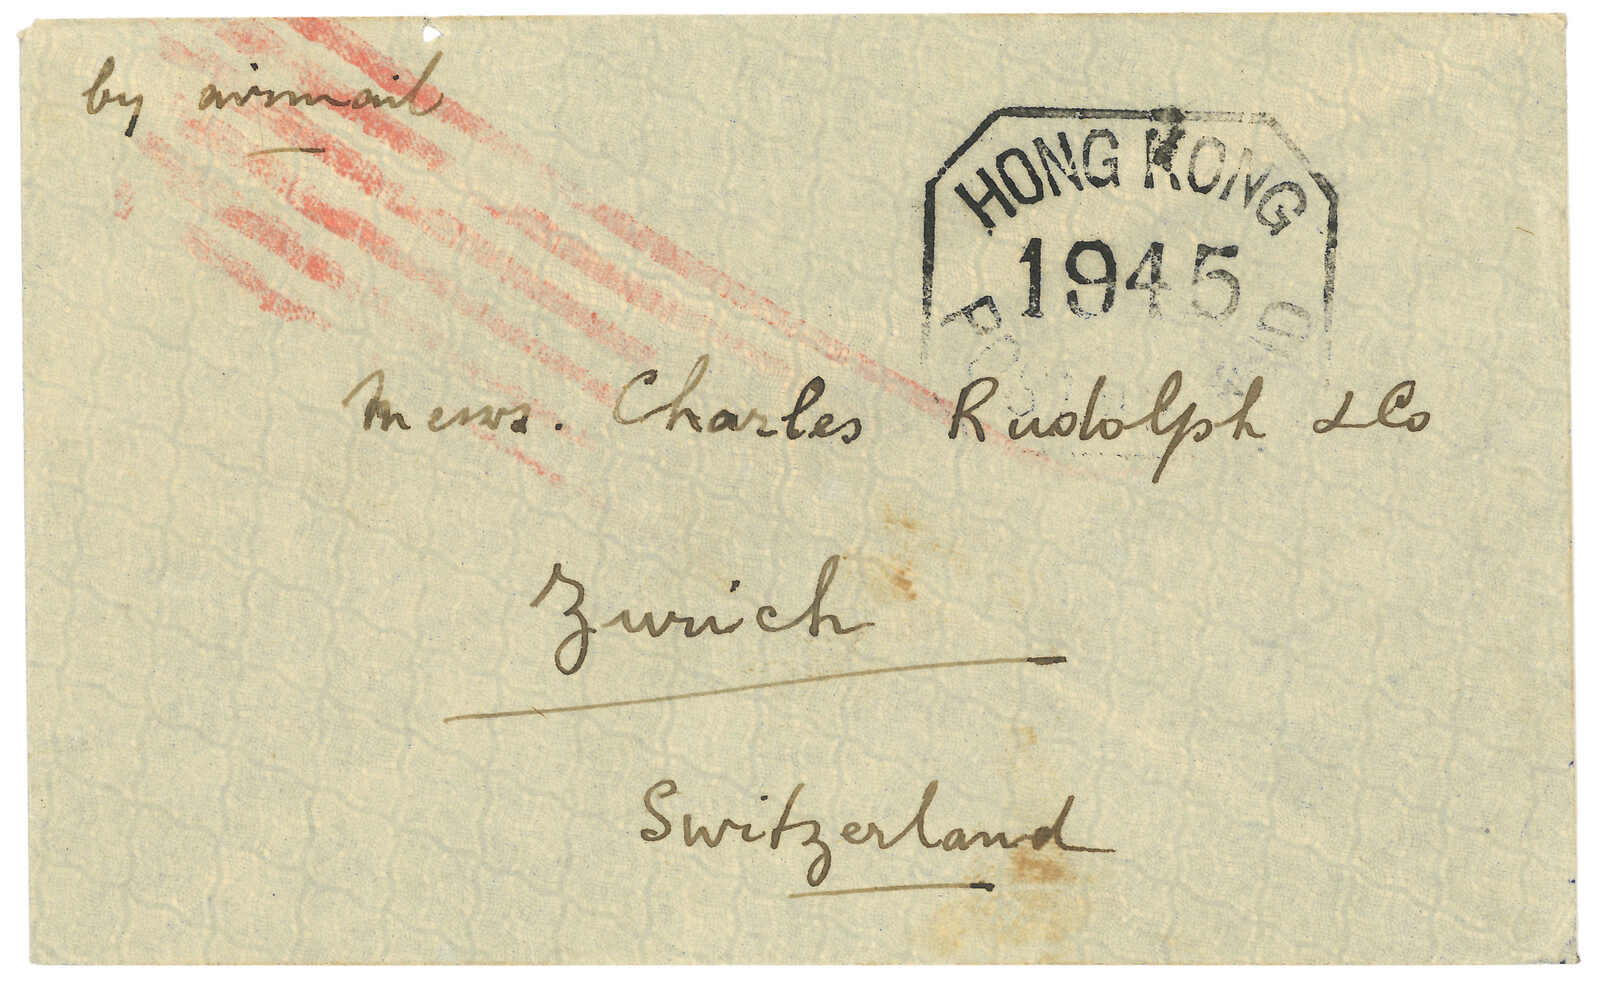 by airmail
HONG KONG
1945
POST PAID
Messrs. Charles Rudolph & Co
Zurich
Switzerland